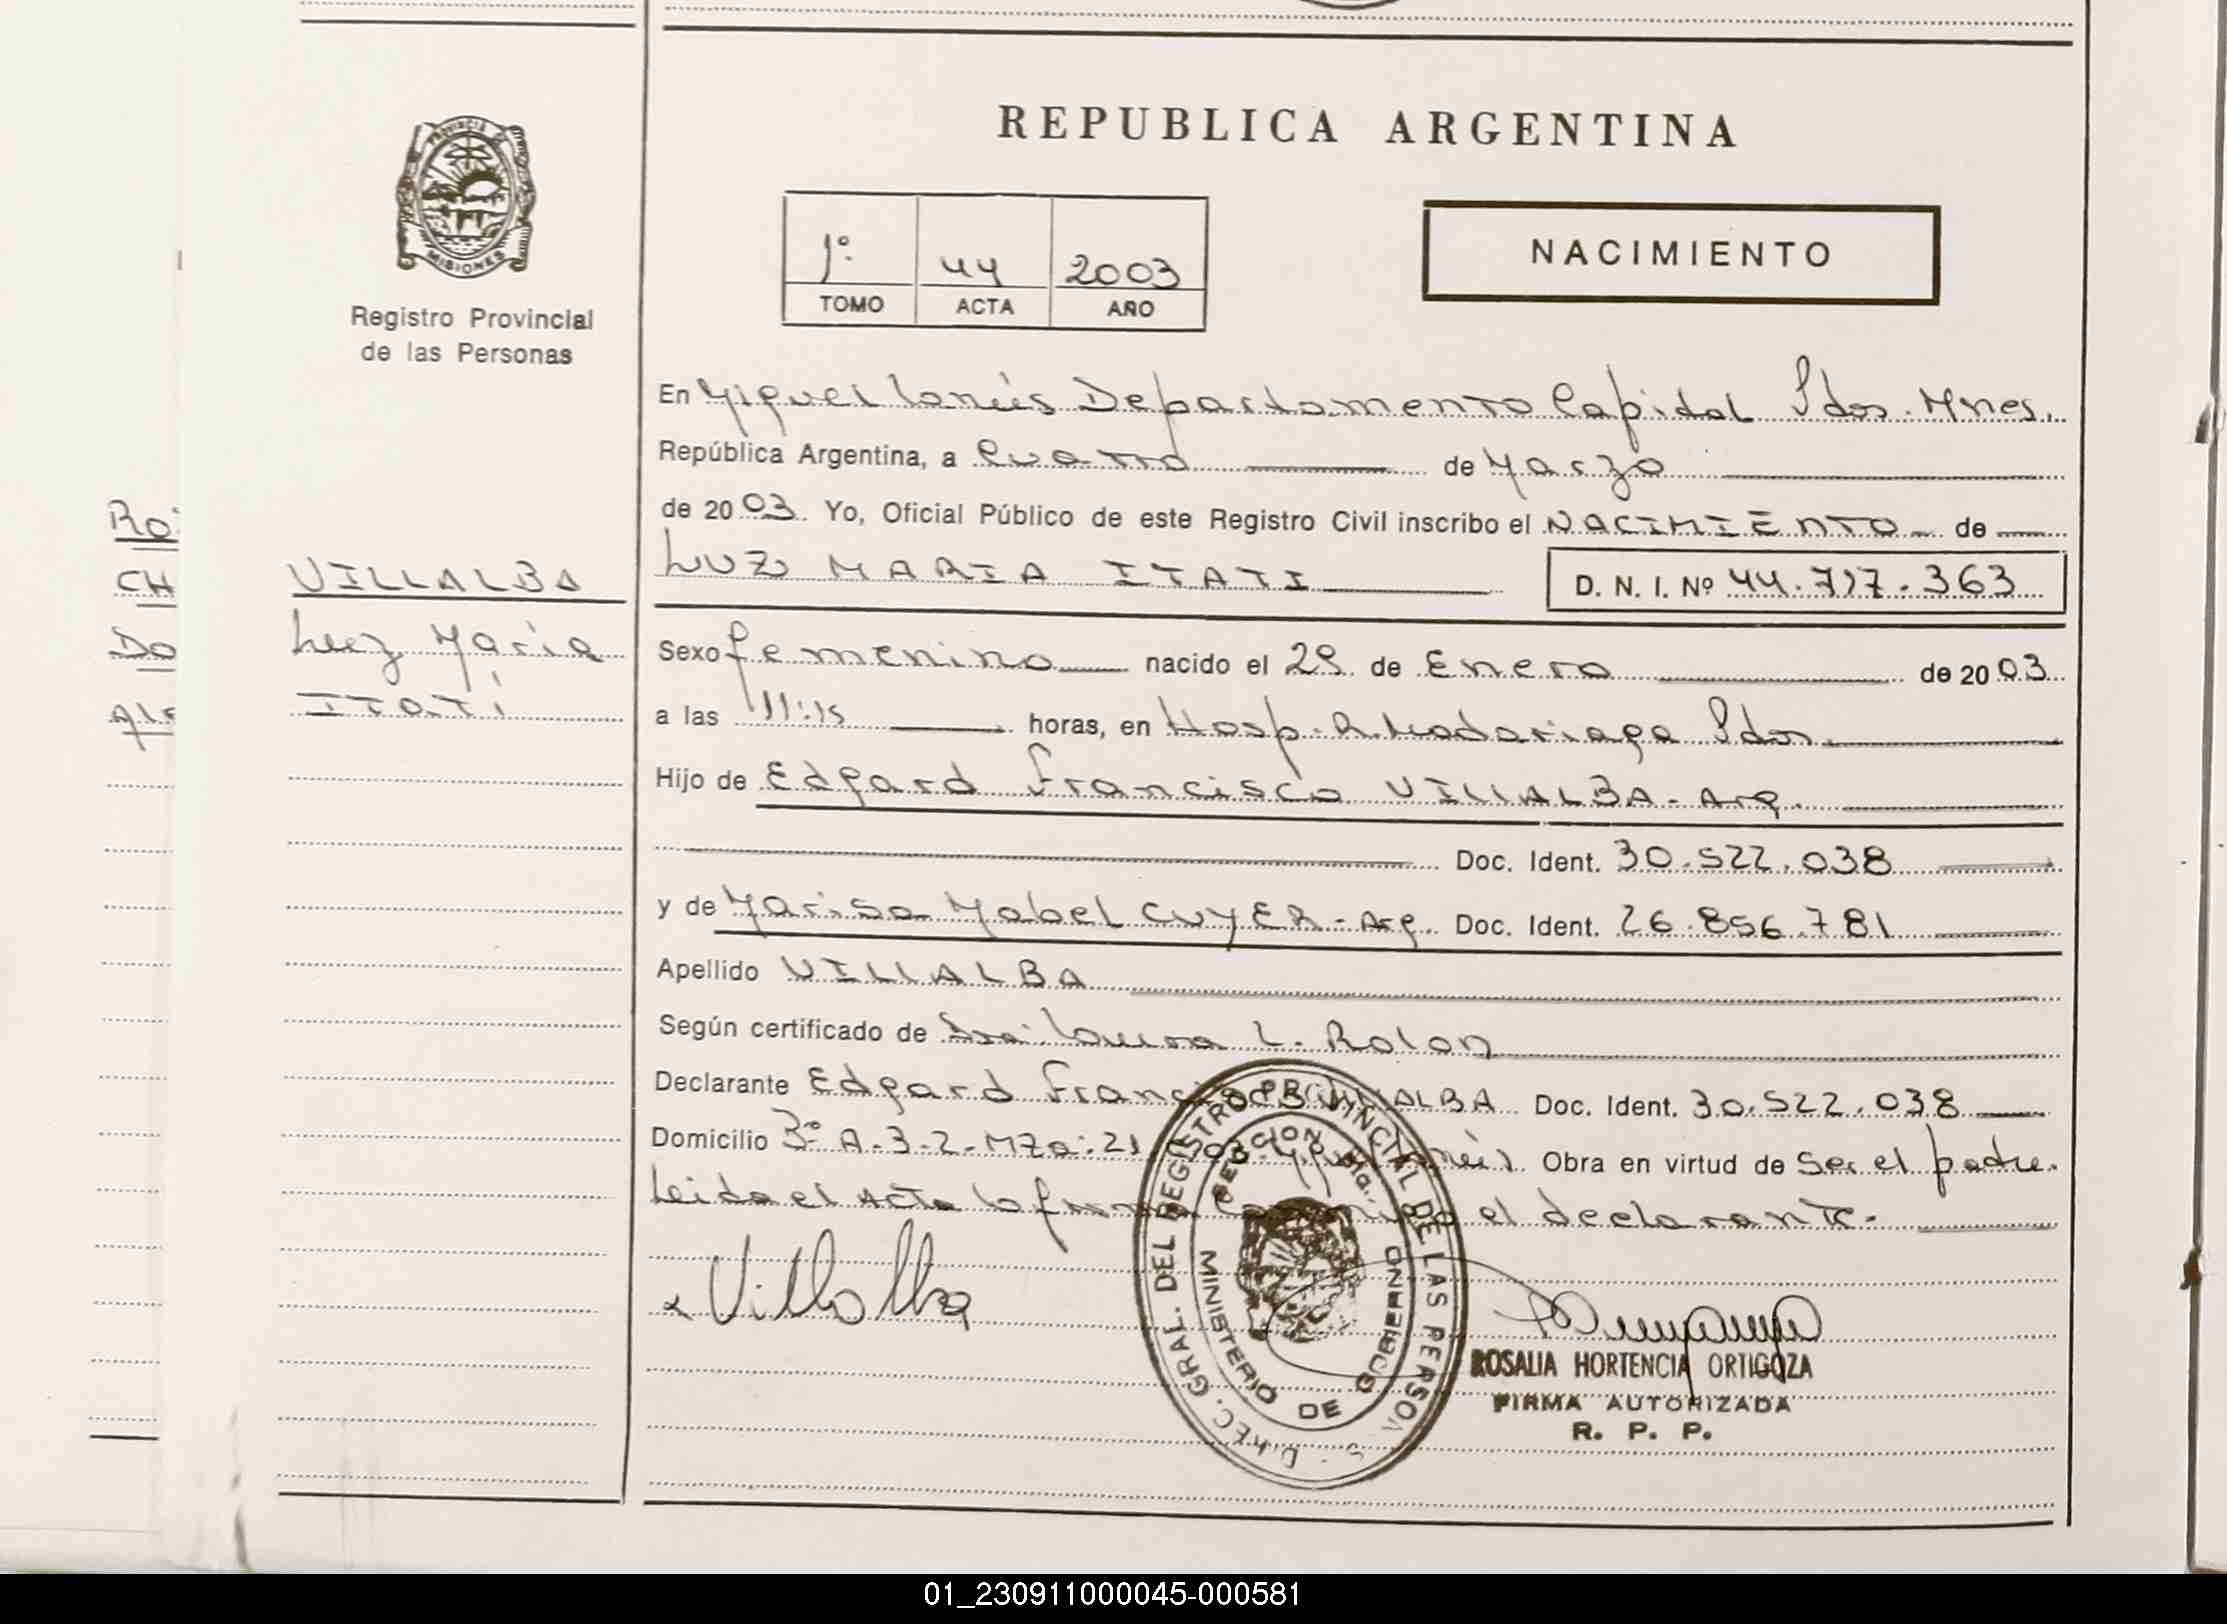 REPUBLICA ARGENTINA
PROVINCIA DE MISIONES
Registro Provincial
de las Personas
1º 44 2003
TOMO ACTA AÑO
NACIMIENTO
En Miguel Lanús Departamento Capital Pdas. Mnes.
República Argentina, a Cuatro de Marzo
de 2003. Yo, Oficial Público de este Registro Civil inscribo el NACIMIENTO de
LUZ MARIA ITATI D. N. I. Nº 44.717.363
VILLALBA
Luz María
ITATí
Sexo femenino nacido el 29 de Enero de 2003
a las 11:15 horas, en Hosp. R. Madariaga Pdas.
Hijo de Edgard Francisco VILLALBA - Arg.
Doc. Ident. 30.522.038
y de Marisa Mabel CUYER - Arg. Doc. Ident. 26.856.781
Apellido VILLALBA
Según certificado de Dra. Laura L. Rolon
Declarante Edgard Francisco VILLALBA Doc. Ident. 30.522.038
Domicilio 3º A-3-2-Mza: 21 Miguel Lanús Obra en virtud de Ser el padre.
Leida el Acta la firma Conmigo el declarante.
Villalba
DIREC. GRAL. DEL REGISTRO PROVINCIAL DE LAS PERSONAS
MINISTERIO DE GOBIERNO
ROSALIA HORTENCIA ORTIGOZA
FIRMA AUTORIZADA
R. P. P.
CH
DO
01_230911000045-000581